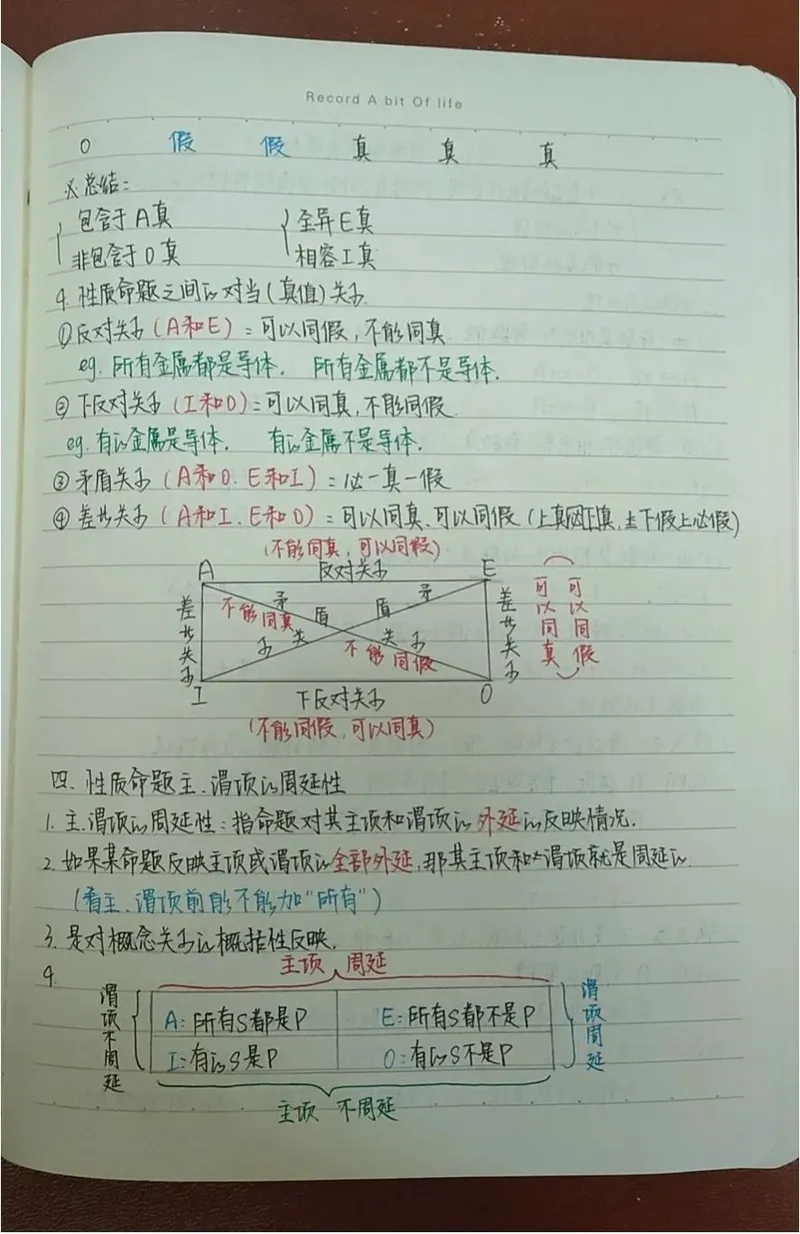 Record A bit Of life
O 假 假 真 真 真
※总结:
包含于A真 全异E真
非包含于O真 相容I真
4. 性质命题之间的对当(真值)关系
①反对关系(A和E)=可以同假,不能同真.
eg. 所有金属都是导体. 所有金属都不是导体.
②下反对关系(I和O)=可以同真,不能同假.
eg. 有的金属是导体. 有的金属不是导体.
③矛盾关系(A和O.E和I)=必一真一假
④差等关系(A和I.E和O)=可以同真、可以同假(上真必下真,下假上必假)
(不能同真,可以同假)
A 反对关系 E
差等关系
矛盾关系
矛盾关系
不能同真
不能同假
差等关系
(可以同真
可以同假)
I 下反对关系 O
(不能同假,可以同真)
四. 性质命题主.谓项的周延性
1. 主.谓项的周延性:指命题对其主项和谓项的外延的反映情况.
2. 如果某命题反映主项或谓项的全部外延,那其主项和谓项就是周延的
(看主.谓项前能不能加“所有”)
3. 是对概念关系的概括性反映.
4.
主项 周延
谓项不周延
A:所有S都是P E:所有S都不是P
I:有的S是P O:有的S不是P
谓项周延
主项 不周延